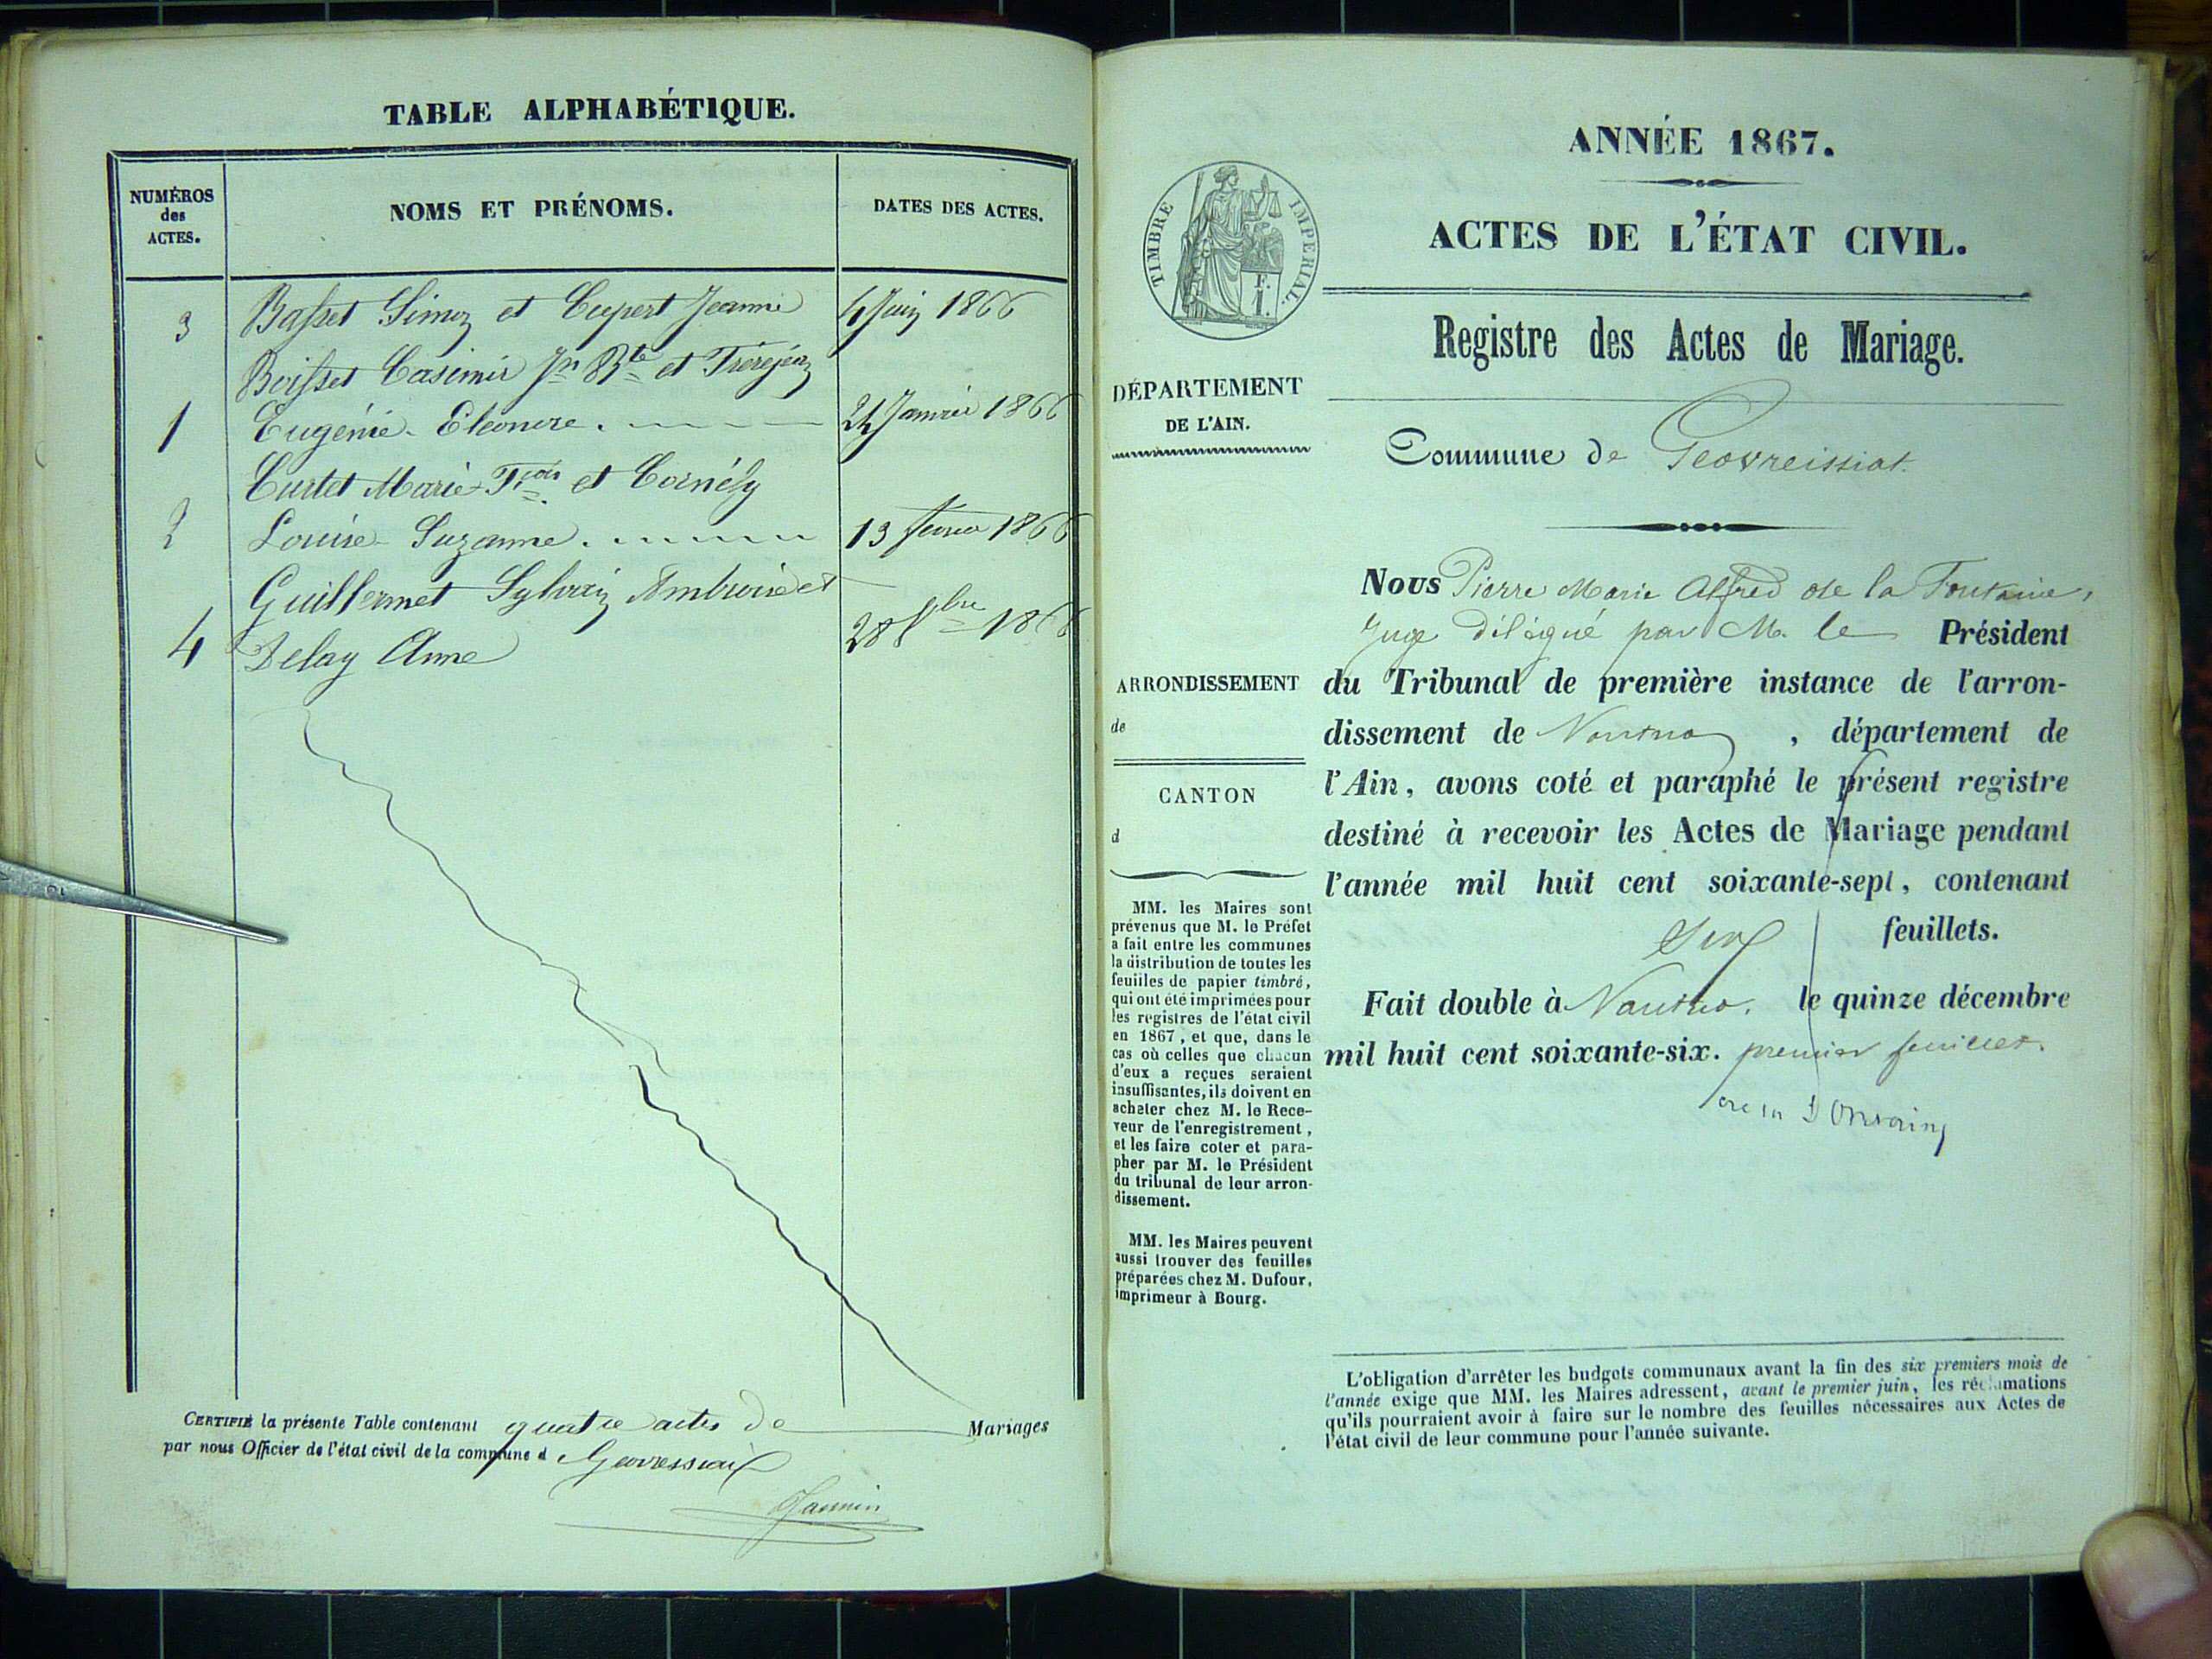 TABLE ALPHABÉTIQUE.
NUMÉROS
des
ACTES.
NOMS ET PRÉNOMS.
DATES DES ACTES.
3 Basset Simon et Cupert Jeanne 4 Juin 1866
Boisset Casimir Jn Bte et Trérejean
1 Eugénie Eléonore. 24 Janvier 1866
Curtet Marie Fçois et Cornély
2 Louise Suzanne. 13 février 1866
Guillermet Sylvain Ambroise et
4 Delay Anne 28 8bre 1866
CERTIFIÉ la présente Table contenant quatre actes de Mariages
par nous Officier de l'état civil de la commune d
Jannin
ANNÉE 1867.
ACTES DE L'ÉTAT CIVIL.
TIMBRE IMPERIAL.
F.
1.
Registre des Actes de Mariage.
DÉPARTEMENT
DE L'AIN.
Commune de Géovreissiat.
Nous Pierre Marie Alfred de la Fontaine,
Juge délégué par M. le Président
du Tribunal de première instance de l'arron-
dissement de Nantua, département de
l'Ain, avons coté et paraphé le présent registre
destiné à recevoir les Actes de Mariage pendant
l'année mil huit cent soixante-sept, contenant
feuillets.
Fait double à Nantua. le quinze décembre
mil huit cent soixante-six. premier feuillet.
ARRONDISSEMENT
de
CANTON
d
MM. les Maires sont
prévenus que M. le Préfet
a fait entre les communes
la distribution de toutes les
feuilles de papier timbré,
qui ont été imprimées pour
les registres de l'état civil
en 1867, et que, dans le
cas où celles que chacun
d'eux a reçues seraient
insuffisantes, ils doivent en
acheter chez M. le Rece-
veur de l'enregistrement,
et les faire coter et para-
pher par M. le Président
du tribunal de leur arron-
dissement.
MM. les Maires peuvent
aussi trouver des feuilles
préparées chez M. Dufour,
imprimeur à Bourg.
L'obligation d'arrêter les budgets communaux avant la fin des six premiers mois de
l'année exige que MM. les Maires adressent, avant le premier juin, les réclamations
qu'ils pourraient avoir à faire sur le nombre des feuilles nécessaires aux Actes de
l'état civil de leur commune pour l'année suivante.